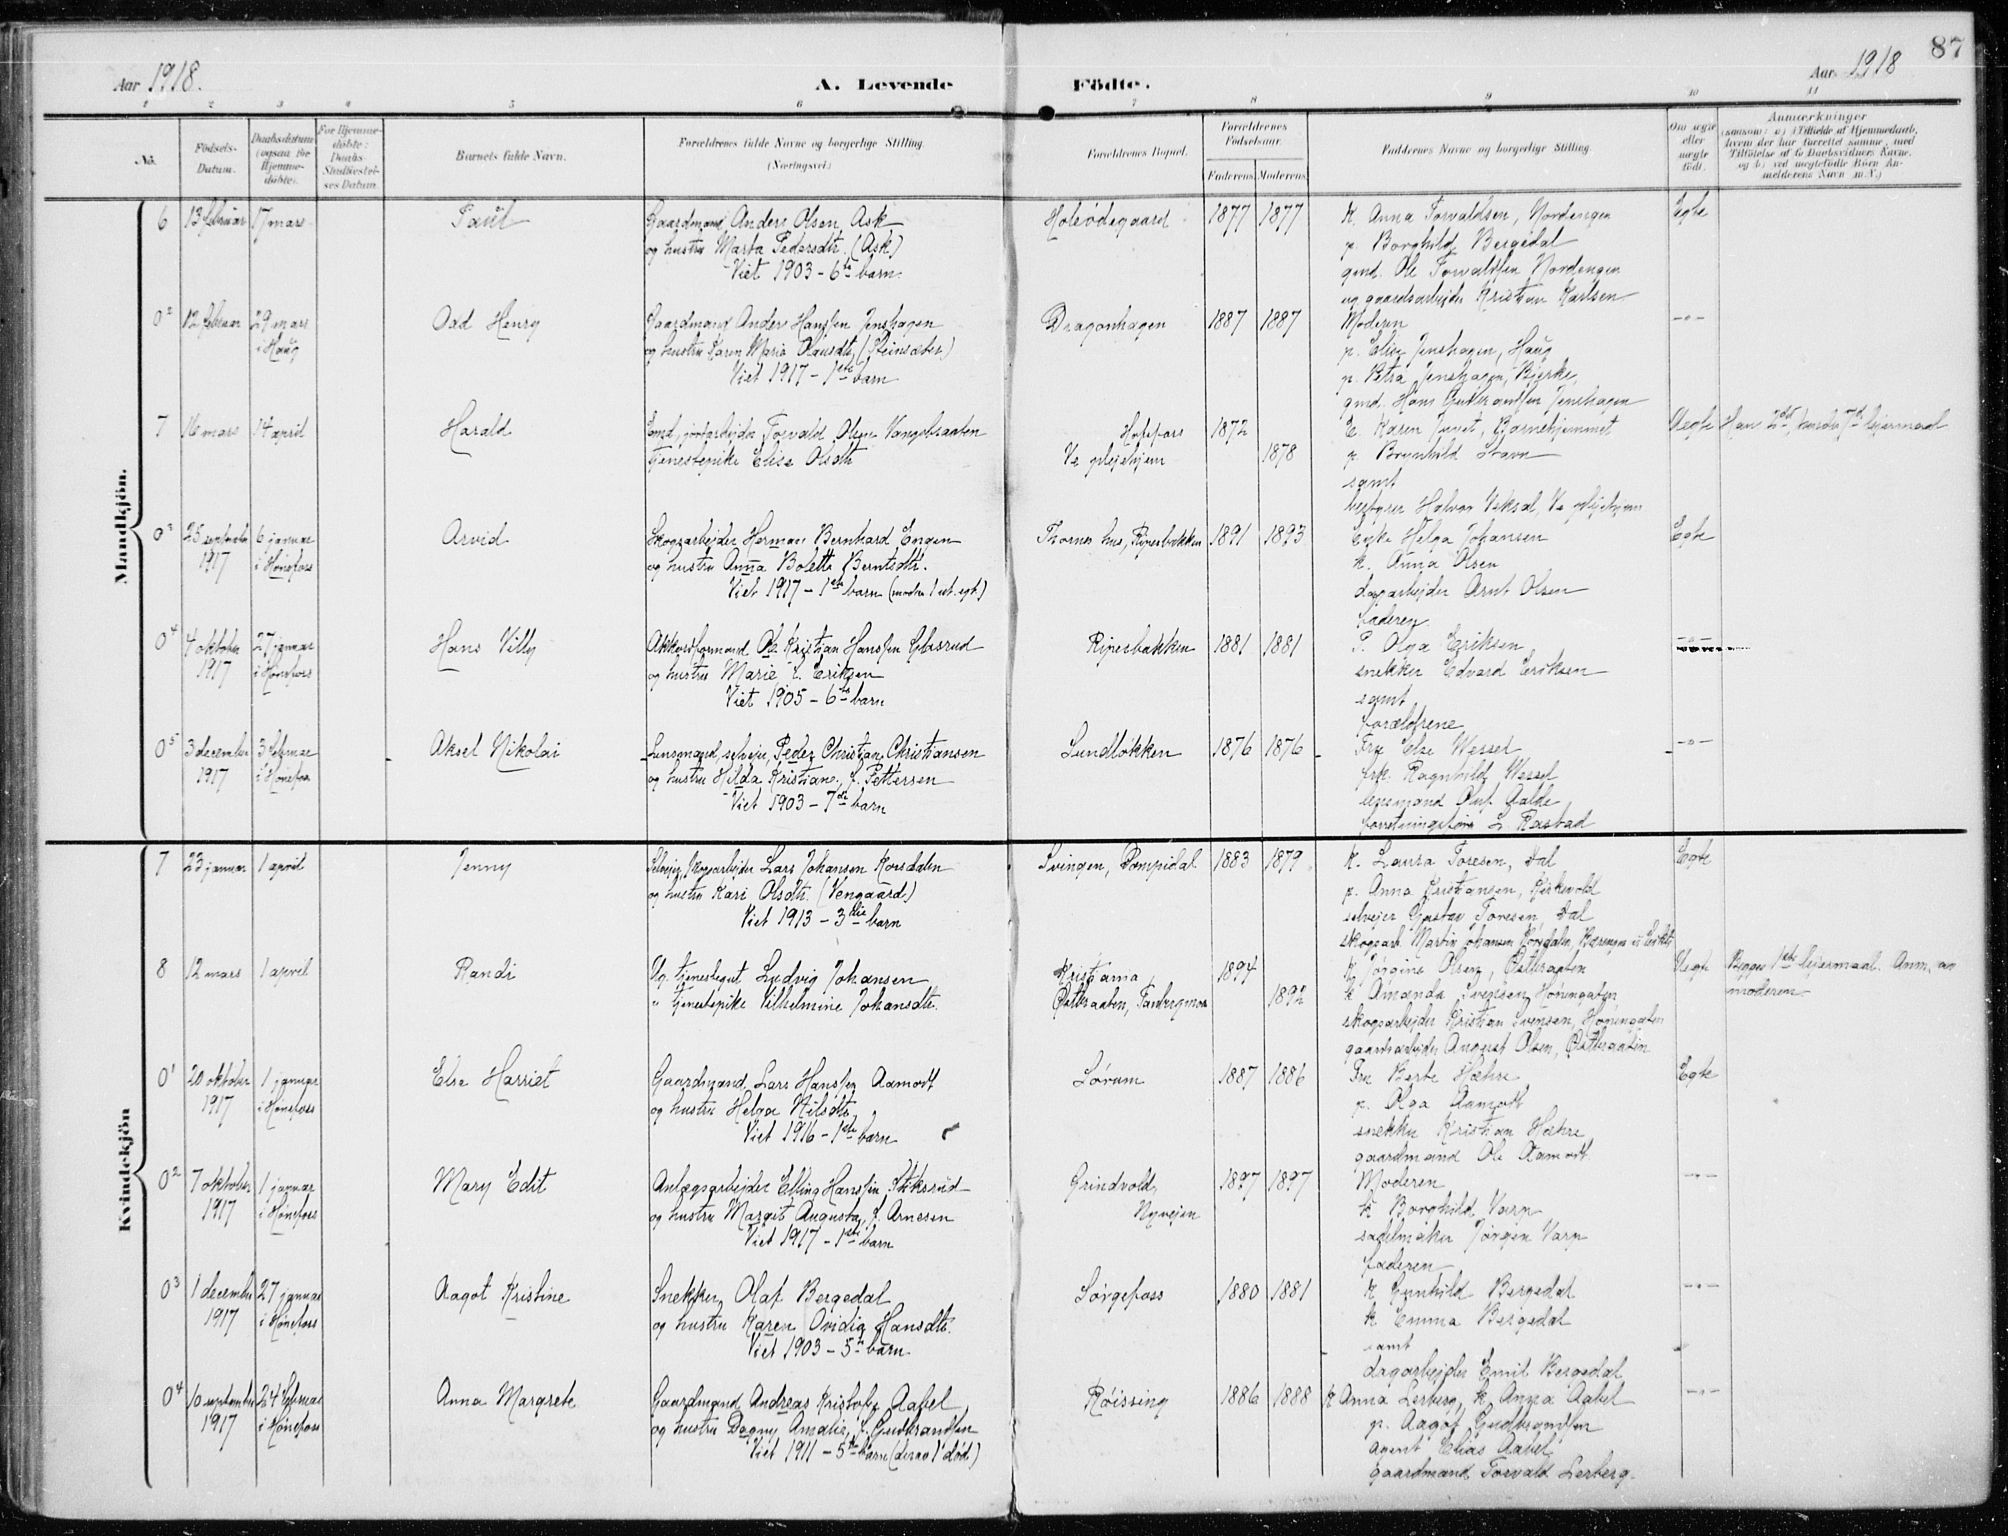 87
Aar 1918.
A. Levende Födte.
Aar 1918
1 2 3 4 5 6 7 8 9 10 11
No.
Födsels-Datum.
Daabsdatum (ogsaa for Hjemme-døbte).
For Hjemme-døbte: Daabs-Stadfæstel-ses Datum.
Barnets fulde Navn.
Forældrenes fulde Navne og borgerlige Stilling. (Næringsvei.)
Forældrenes Bopæl.
Forældrenes Födselsaar.
Faderens. Moderens.
Faddernes Navne og borgerlige Stilling.
Om ægte eller uægte födt.
Anmærkninger
(saasom: a) i Tilfælde af Hjemmedaab, hvem der har forrettet samme, med Tilföielse af to Daabsvidners Navne, og b) ved uægtefödte Börn An-melderens Navn m. V.)
Mandkjön.
6 13 februar 17 mars Paul
Gaardmand Anders Olsen Ask
og hustru Marta Pedersdtr. (Ask)
Viet 1903 - 6te barn.
Holeödegaard 1877 1877
K. Anna Torvaldsen, Nordengen
p. Borghild Bergedal
gmd. Ole Torvaldsen Nordengen
og gaardsarbejder Kristian Karlsen
Egte
0² 12 februar 29 mars i Haug Odd Henry
Gaardmand Anders Hanssen Jenshagen
og hustru Karen Marie Olausdtr.
Viet 1917 - 1ste barn
Dragonhagen 1887 1887
Moderen
p. Elise Jenshagen, Haug
p. Petra Jenshagen, Bjerke,
gmd. Hans Gulbrandsen Jenshagen
-"-
7 16 mars 14 april Harald
Torvald Olsen
tjenestepike Elise Olsdtr
Hofsfos 1872
Ve plejehjem 1878
E. Karen Juvet, Barnehjemmet
p Brynhild
samt
bestyrer Halvor Veksal, Ve plejehjem
Uegte
0³ 25 september 1917 6 januar i Hönefoss Arvid
Skogsarbejder Herman Bernhard Engen
og hustru Anna Bolette Berntsdtr.
Viet 1917 - 1ste barn
Thornes hus, Ripesbakken 1891 1893
Helga Johansen
k. Anna Olsen
dagarbejder Arnt Olsen
faderen
Egte
0⁴ 4 oktober 1917 27 januar i Hönefoss Hans Villy
Akkordformand Ole Kristian Hanssen
og hustru Marie f. Eriksen
Viet 1905 - 6te barn
Ripesbakken 1881 1881
P. Olga Eriksen
snekker Edvard Eriksen
samt
forældrene
-"-
0⁵ 3 december 1917 3 februar i Hönefos Aksel Nikolai
Lensmand, selvejer, Peder Christian Christiansen
og hustru Hilda Kristiane f. Pettersen
Viet 1903 - 7de barn
Lundlökken 1876 1876
Fru Else Wessel
frk. Ragnhild Wessel
lensmand Oluf Aalde
forretningsförer L. Rastad
-"-
Kvindekjön
7 23 januar 1 april Jenny
Selvejer, skogsarbejder Lars Johansen Korsdalen
og hustru Kari Olsdtr. (Vengaard)
Viet 1913 - 3die barn
Svingen, Sompidal 1883 1879
k. Laura Toresen, Dal
p. Anna Kristiansen, Kirkevold
selvejer Gustav Toresen, Dal
skogsarb. Martin Johansen Korsdalen,
Egte
8 12 mars 1 april Randi
Ug. tjenestegut Ludvig Johansen
" tjenestepike Vilhelmine Johansdtr.
Kristiania 1894
1892
K. Jörgine Olsen,
k Amanda Svensen,
skogsarbejder Kristian Svensen,
gaardsarbejder August Olsen,
Uegte
Begges 1ste lejermaal. Anm. av moderen
0¹ 20 oktober 1917 1 januar i Hönefoss Else Harriet
Gaardmand Lars Hanssen Aamodt
og hustru Helga Nilsdtr.
Viet 1916 - 1ste barn
Sörum 1887 1886
Fru Berte Hæhre
p. Olga Aamodt
snekker Kristian Hæhre
gaardmand Ole Aamodt
Egte
0² 7 oktober 1917 1 januar i Hönefoss Mary Edit
Anlægsarbejder Elling Hanssen Stiksrud
og hustru Margit Augusta, f. Arnesen
Viet 1917 - 1ste barn
Grindvold, Nyvejen 1897 1897
Moderen
k Borghild Varp
sadelmaker Jörgen Varp
faderen
-"-
0³ 1 december 1917 27 januar i Hönefoss Aagot Kristine
Snekker Olaf Bergedal
og hustru Karen Ovidia Hansdtr.
Viet 1903 - 5te barn
Sörgefoss 1880 1881
K Gunhild Bergedal
k Emma Bergedal
samt
dagarbejder Emil Bergedal
-"-
0⁴ 10 september 1917 24 februar i Hönefoss Anna Margrete
Gaardmand Andreas Kristofer Aabel
og hustru Dagny Amalie, f. Gudbrandsen
Viet 1911 - 5te barn (derav 1 död)
Röissing 1886 1888
K Anna Lerberg, k. Anna Aabel
p. Aagot Gudbrandsen
agent Elias Aabel
gaardmand Torvald Lerberg.
-"-